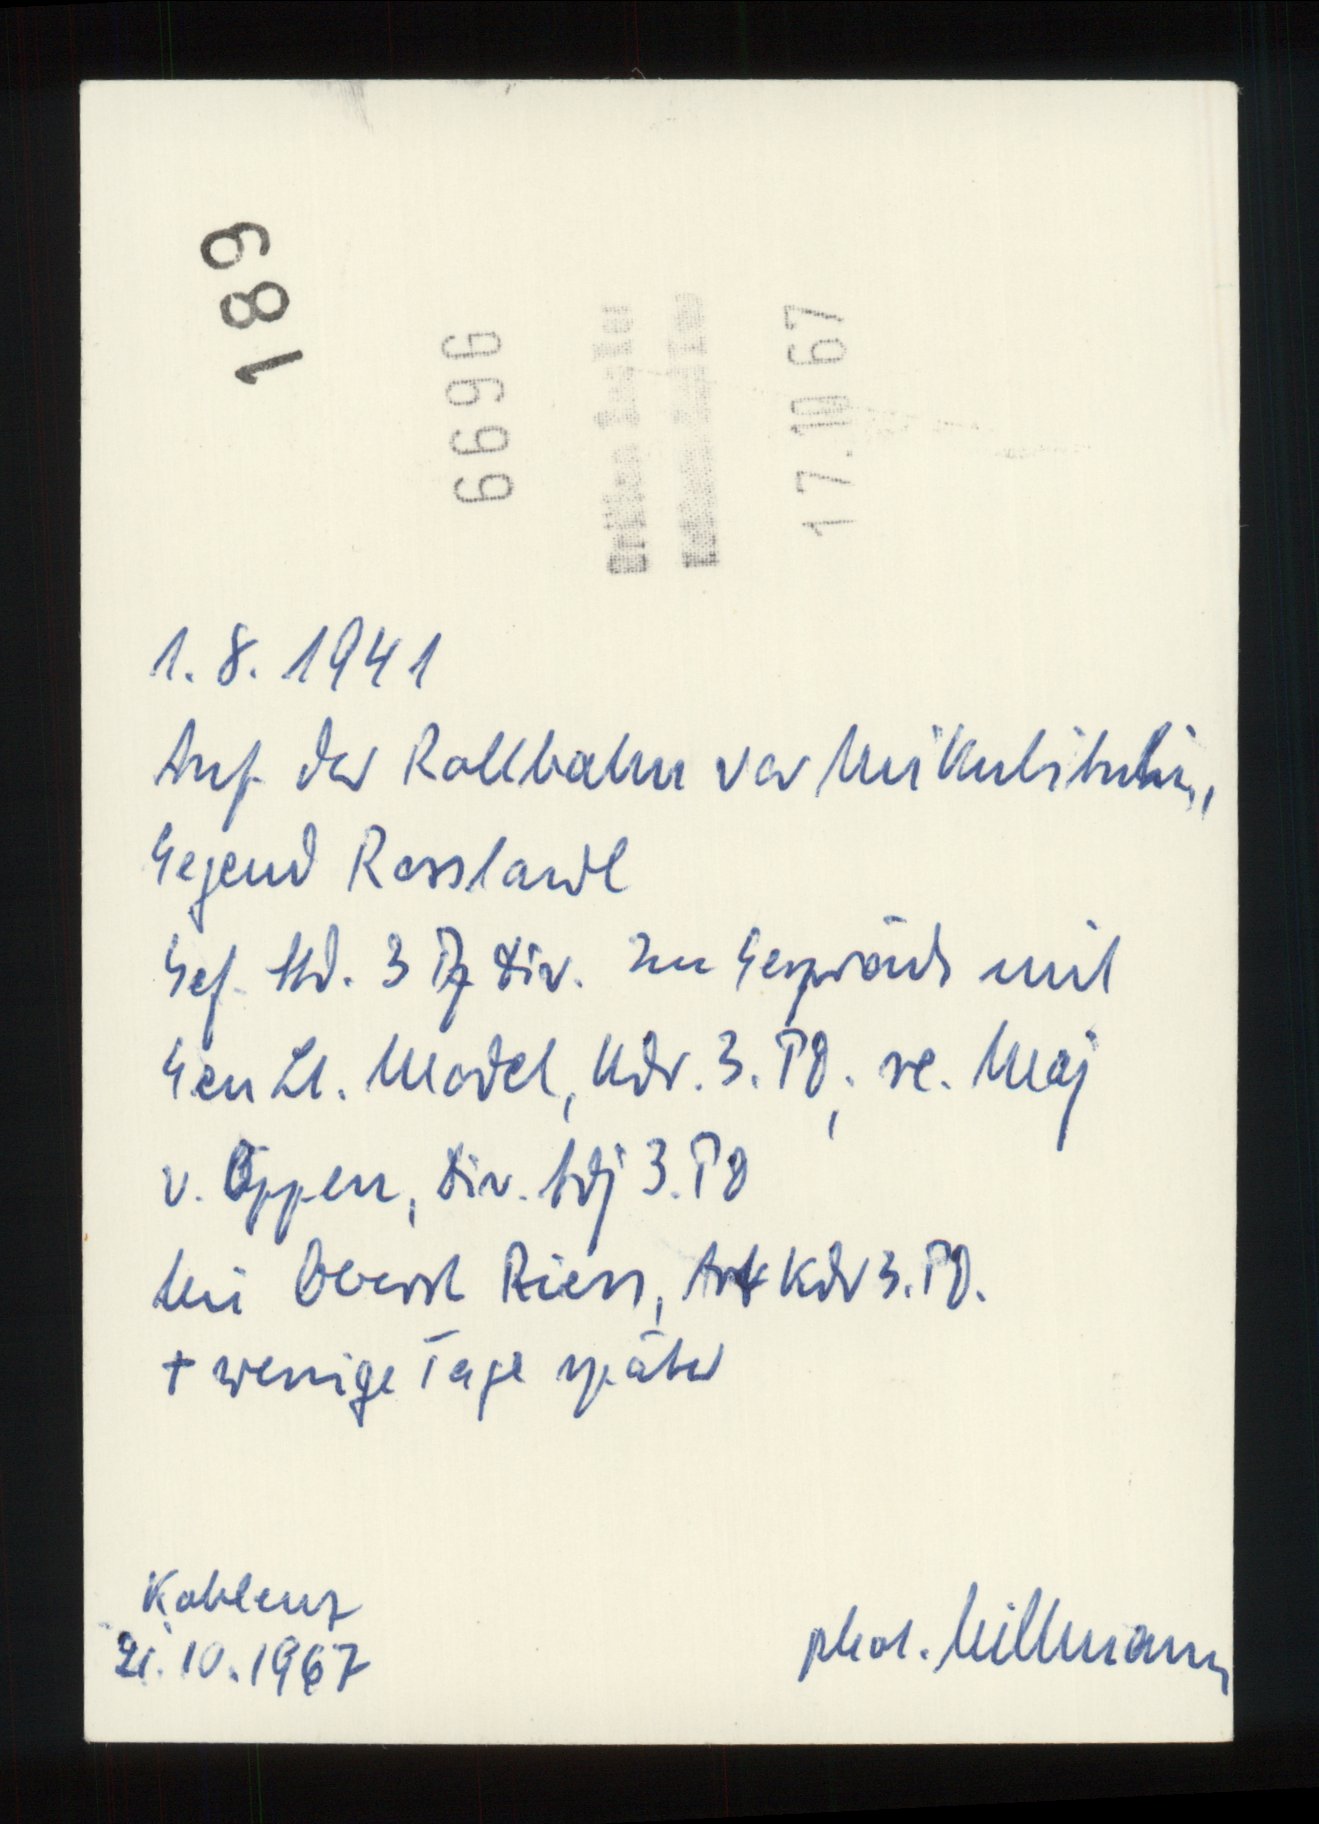 189
6696
17.10 67
1.8.1941
Auf der Rollbahn vor
Gegend Rosslawl
Gef. Std. 3 Pz Div. Im Gespräch mit
Gen Lt. Model, Kdr. 3. PD, re. Maj
v. Oppen, Div. Adj 3. PD
li Oberst Riess, Art Kdr 3. PD.
+ wenige Tage später
Koblenz
21.10.1967
phot.